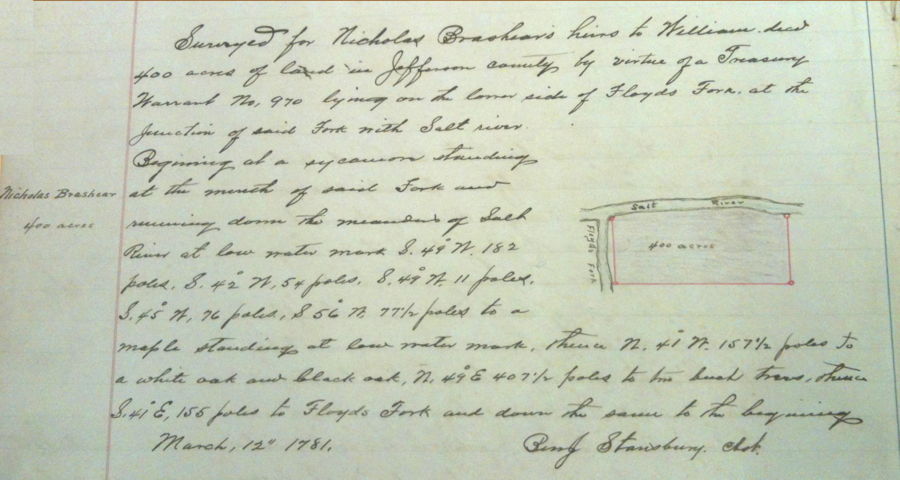 Surveyed for Nicholas Brashear's heirs to William decd
400 acres of land in Jefferson county by virtue of a Treasury
Warrant No. 970 lying on the lower side of Floyds Fork. at the
Junction of said Fork with Salt river
Begining at a sycamore standing
at the mouth of said Fork and
running down the meanders of Salt
River at low water mark S. 49° W. 182
poles, S. 42° W, 54 poles, S. 49° W. 11 poles,
S. 45° W, 76 poles, S 56° W. 77 1/2 poles to a
maple standing at low water mark, thence N. 41° W. 157 1/2 poles to
a white oak and black oak, N. 49° E 407 1/2 poles to two beech trees, thence
S. 41° E, 155 poles to Floyds Fork and down the same to the beginning
March, 12" 1781.
Benj Stansbury.
Nicholas Brashear
400 acres
Salt River
Floyds Fork
400 acres